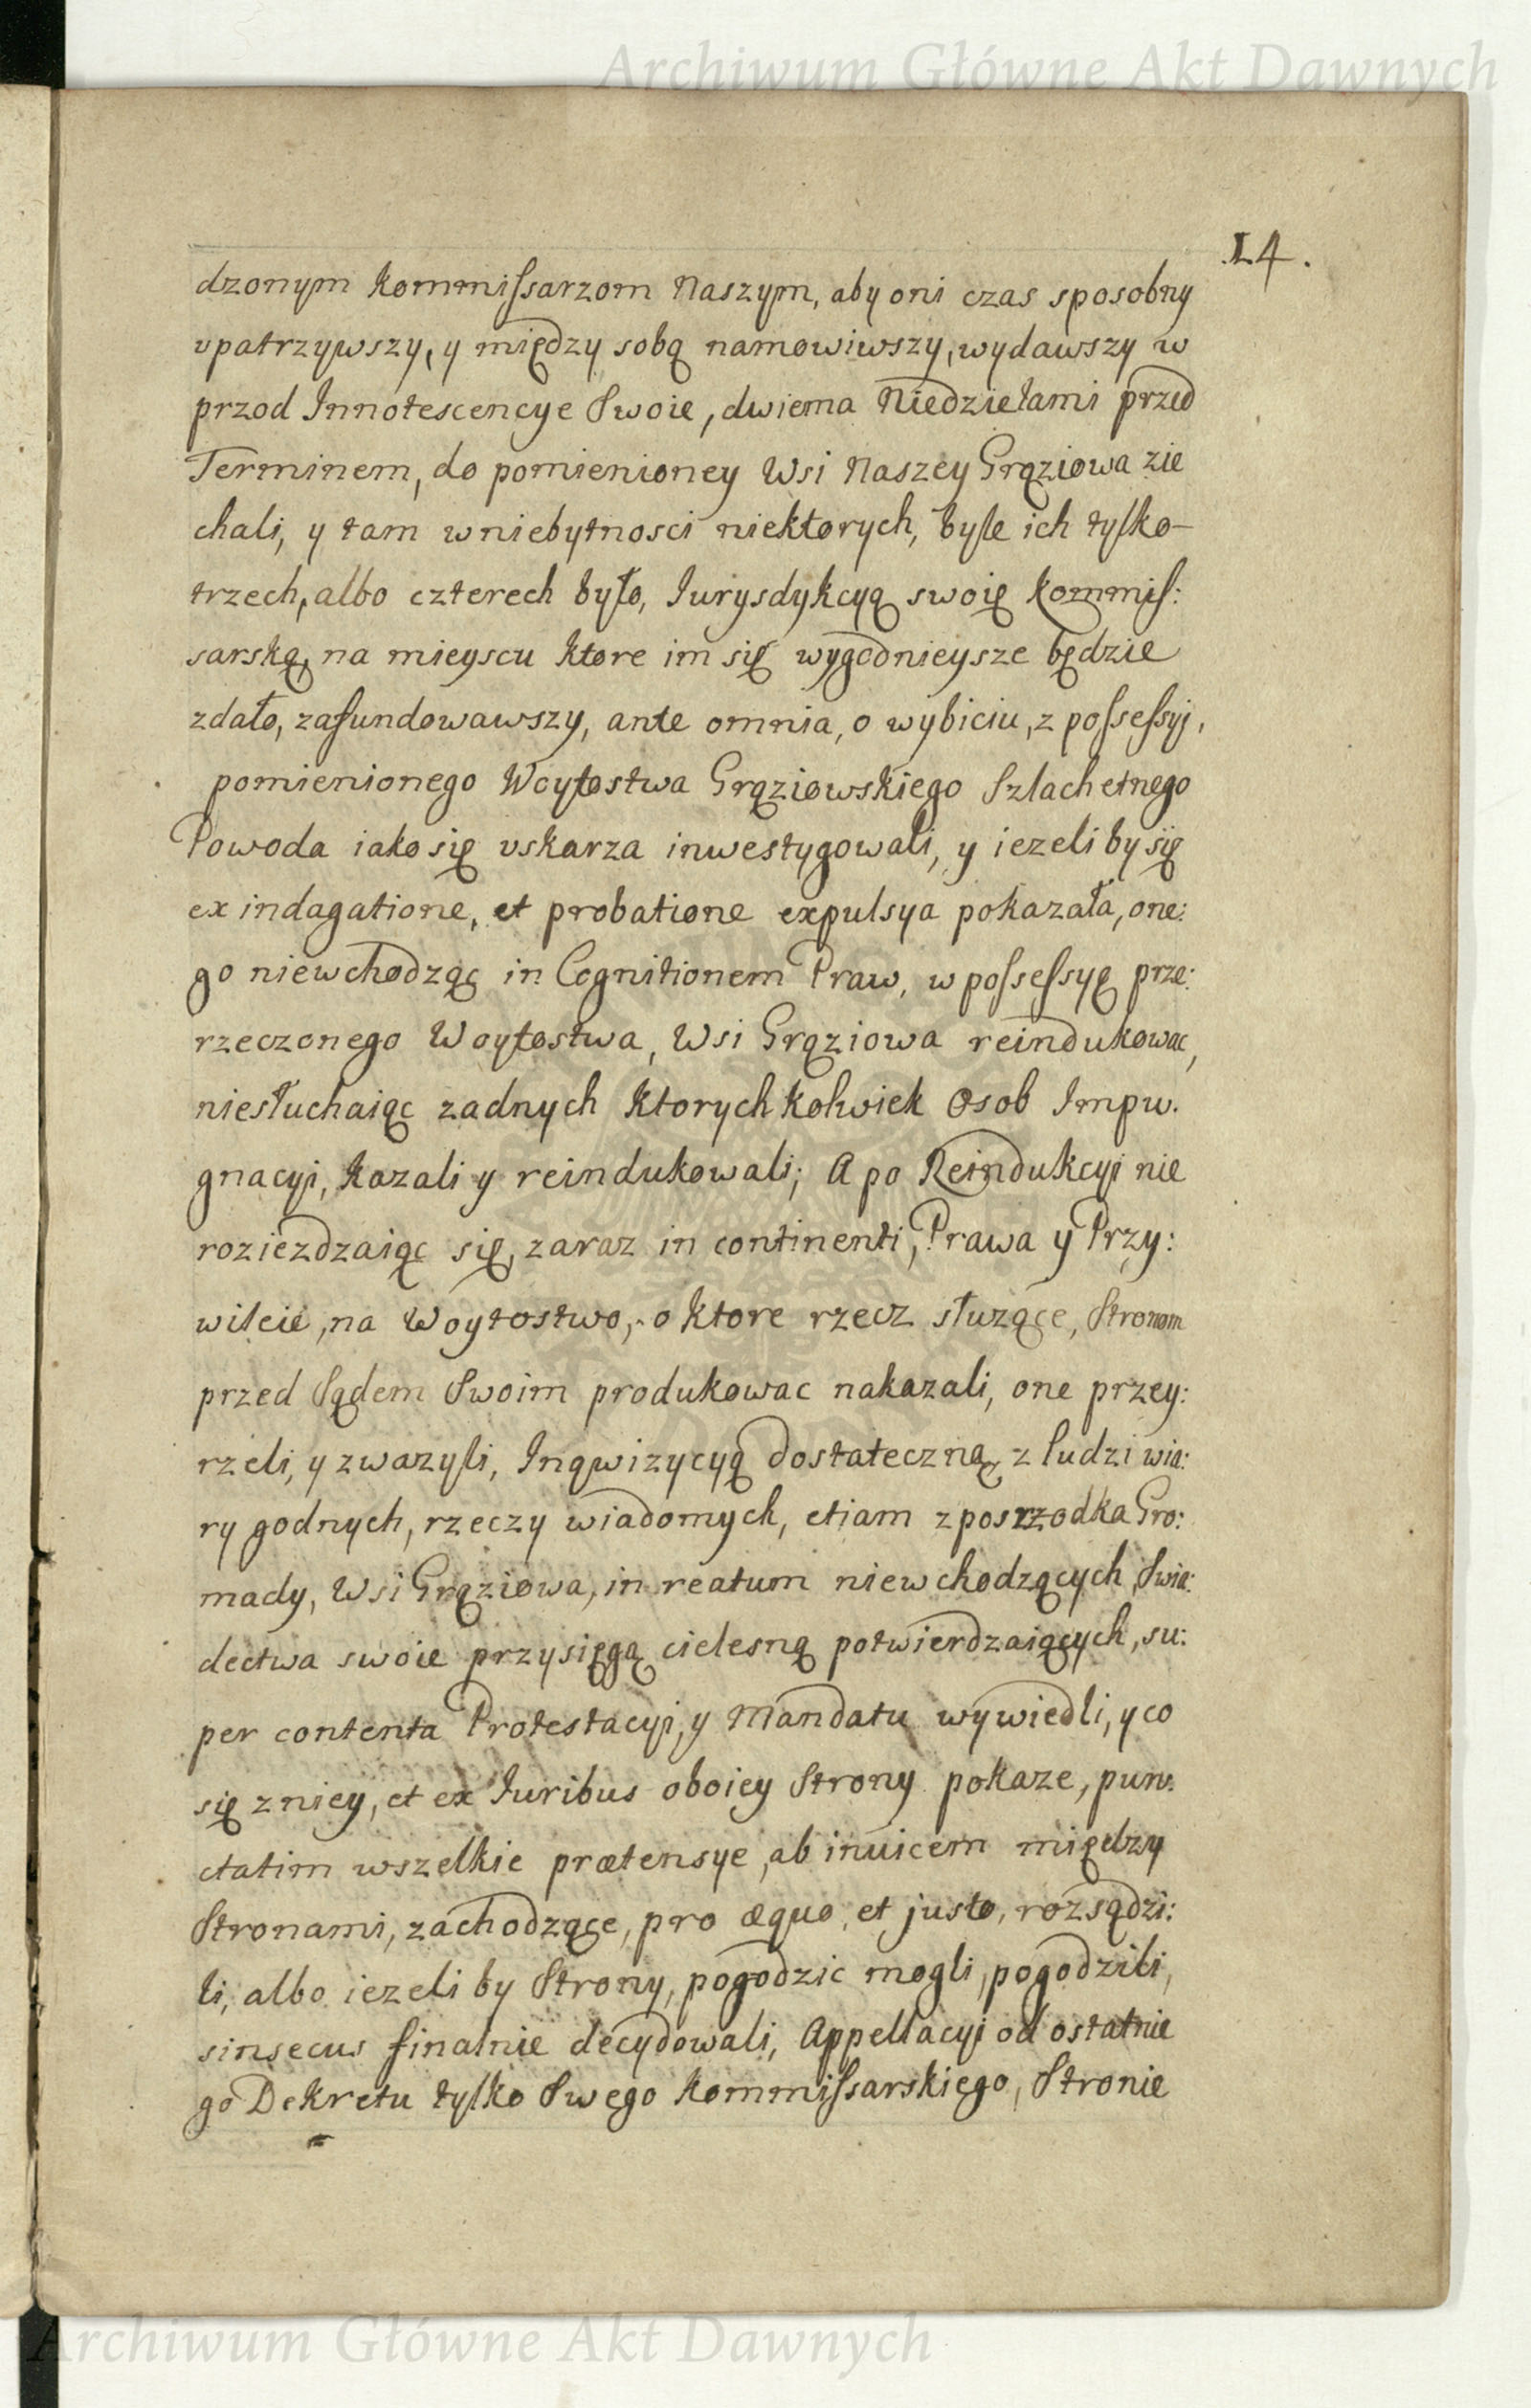 Archiwum Główne Akt Dawnych
14.
dzonym Kommissarzom Naszym, aby oni czas sposobny
upatrzywszy, y między sobą namowiwszy, wydawszy w
przod Innotescencye Swoie, dwiema Niedzielami przed
Terminem, do pomienioney Wsi Naszey Grąziowa zie
chali, y tam w niebytnosci niektorych, byle ich tylko-
trzech, albo czterech było, Iurysdykcyą swoię Kommis:
sarską, na mieyscu ktore im się wygodnieysze będzie
zdało, zafundowawszy, ante omnia, o wybiciu, z possessyj,
pomienionego Woytostwa Grąziowskiego Szlachetnego
Powoda iako się uskarza inwestygowali, y iezeli by się
ex indagatione, et probatione expulsya pokazała, one:
go niewchodząc in Cognitionem Praw, w possessyę prze:
rzeczonego Woytostwa, Wsi Grąziowa reindukowac,
niesłuchaiąc zadnych ktorychkolwiek Osob Impu.
gnacyi, kazali y reindukowali; A po Reindukcyi nie
roziezdzaiąc się, zaraz in continenti, Prawa y Przy:
wileie, na Woytostwo, o ktore rzecz słuzące, Stronom
przed Sądem Swoim produkowac nakazali, one przey:
rzeli, y zwazyli, Inqwizycyą dostateczną, z ludzi wia:
ry godnych, rzeczy wiadomych, etiam z poszrzodka Gro:
mady, Wsi Grąziowa, in reatum niewchodzących, Swia:
dectwa swoie przysięgą cielesną potwierdzaiących, su:
per contenta Protestacyi, y Mandatu wywiedli, y co
się z niey, et ex Iuribus oboiey Strony pokaze, pun:
ctatim wszelkie prætensye, ab inuicem między
Stronami, zachodzące, pro æquo, et justo, rozsądzi:
li, albo iezeli by Strony, pogodzic mogli, pogodzili,
sinsecus finalnie decydowali, Appellacyi od ostatnie
go Dekretu tylko Swego Kommissarskiego, Stronie
Archiwum Główne Akt Dawnych